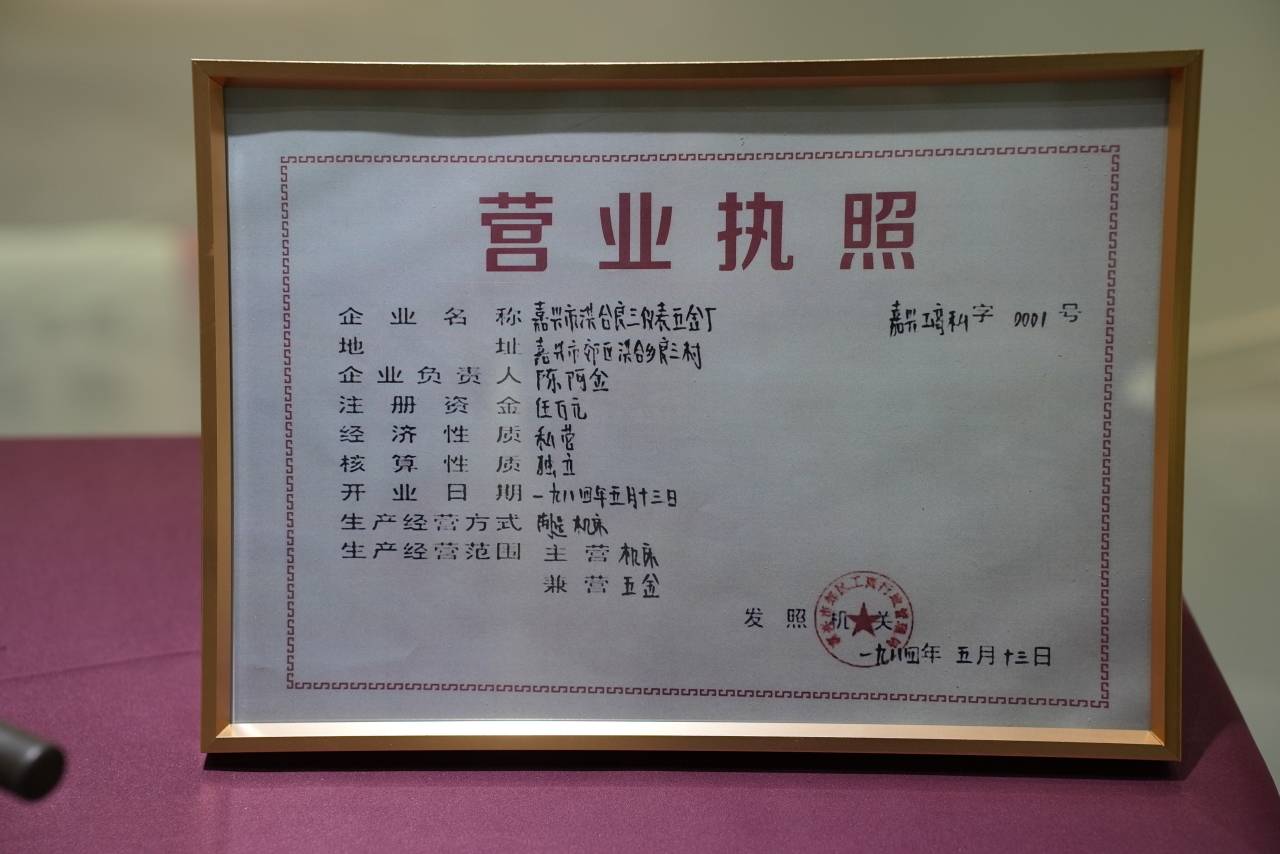 营业执照
企业名称 嘉兴市洪合良三仪表五金厂 嘉兴工商私字 0001 号
地址 嘉兴市郊区洪合乡良三村
企业负责人 陈阿金
注册资金 伍万元
经济性质 私营
核算性质 独立
开业日期 一九八四年五月十三日
生产经营方式 制造 机床
生产经营范围 主营 机床
兼营 五金
发照机关
嘉兴市郊区工商行政管理局
一九八四年 五月十三日